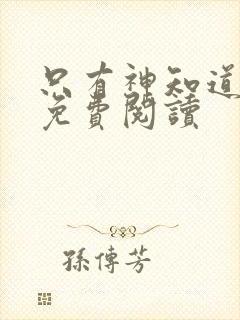 只有神知道
免費閱讀
孫傳芳